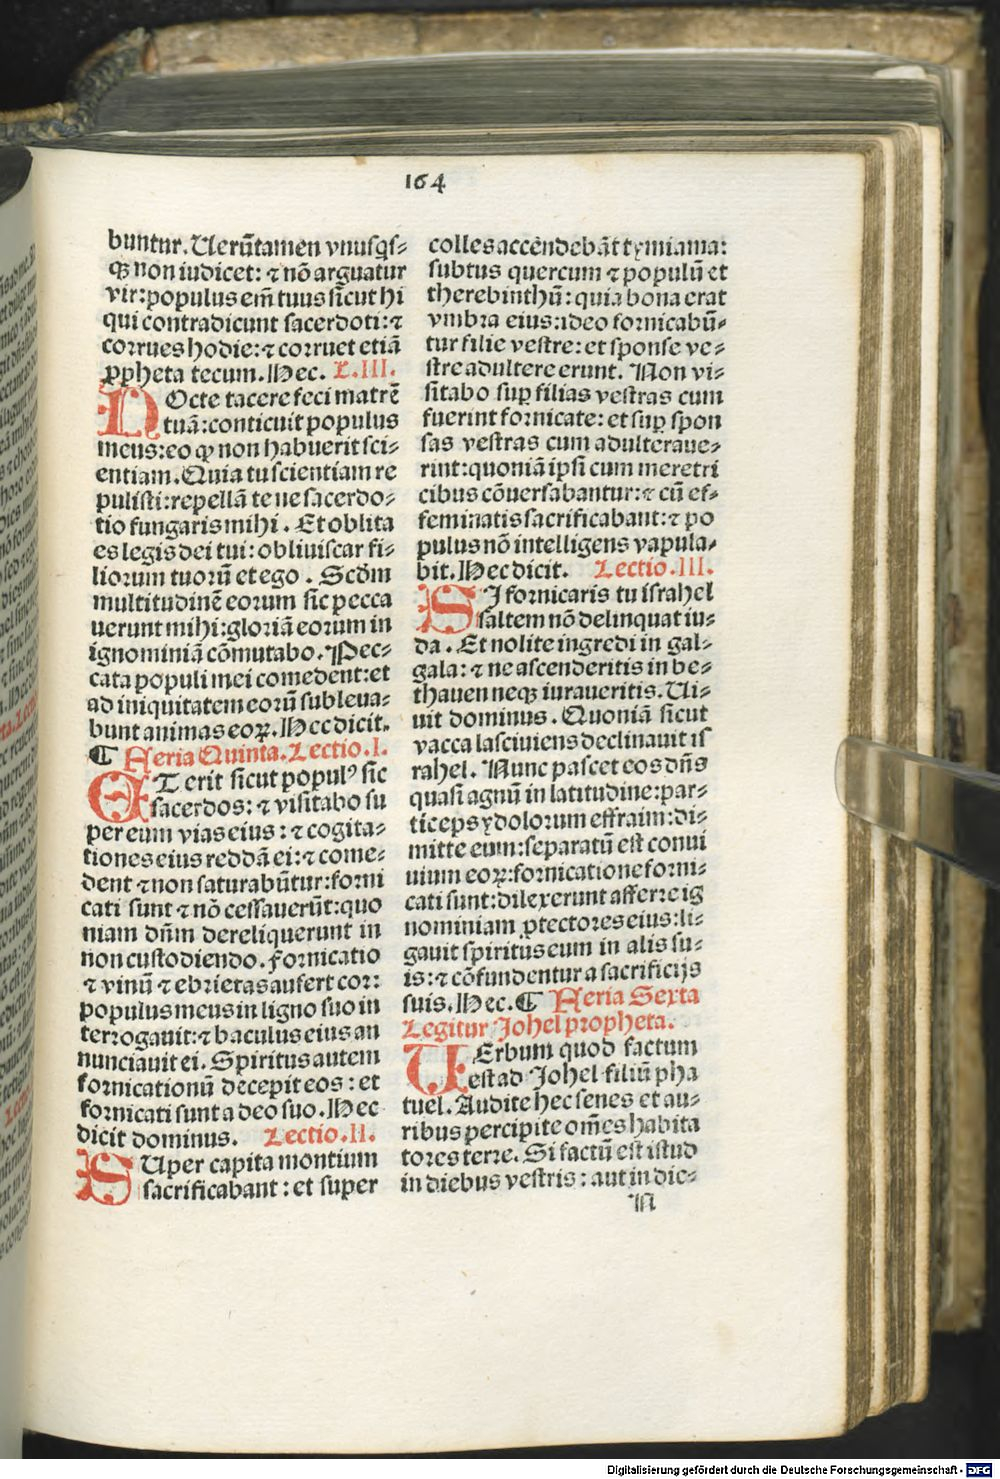 164
buntur. Uerūtamen vnusqs⸗
qꝫ non iudicet: ⁊ nō arguatur
vir: populus em̄ tuus sicut hi
qui contradicunt sacerdoti: ⁊
corrues hodie: ⁊ corruet etiā
ꝓpheta tecum. Hec. L. III.
NOcte tacere feci matrē
tuā: conticuit populus
meus: eo ꝙ non habuerit sci⸗
entiam. Quia tu scientiam re
pulisti: repellā te ne sacerdo⸗
tio fungaris mihi. Et oblita
es legis dei tui: obliuiscar fi⸗
liorum tuorū et ego. Scd̄m
multitudinē eorum sic pecca
uerunt mihi: gloriā eorum in
ignominiā cōmutabo. Pec⸗
cata populi mei comedent: et
ad iniquitatem eorū subleua⸗
bunt animas eoꝝ. Hec dicit.
¶ Feria Quinta. Lectio. I.
ET erit sicut populꝰ sic
sacerdos: ⁊ visitabo su
per eum vias eius: ⁊ cogita⸗
tiones eius reddā ei: ⁊ come⸗
dent ⁊ non saturabūtur: forni
cati sunt ⁊ nō cessauerūt: quo
niam dn̄m dereliquerunt in
non custodiendo. Fornicatio
⁊ vinū ⁊ ebrietas aufert cor:
populus meus in ligno suo in
terrogauit: ⁊ baculus eius an
nunciauit ei. Spiritus autem
fornicationū decepit eos: et
fornicati sunt a deo suo. Hec
dicit dominus. Lectio. II.
SUper capita montium
sacrificabant: et super
colles accēndebāt tymiama:
subtus quercum ⁊ populū et
therebinthū: quia bona erat
vmbra eius: ideo fornicabū⸗
tur filie vestre: et sponse ve⸗
stre adultere erunt. Non vi⸗
sitabo suꝑ filias vestras cum
fuerint fornicate: et suꝑ spon
sas vestras cum adulteraue⸗
rint: quoniā ipsi cum meretri
cibus cōuersabantur: ⁊ cū ef⸗
feminatis sacrificabant: ⁊ po
pulus nō intelligens vapula⸗
bit. Hec dicit. Lectio. III.
SI fornicaris tu israhel
saltem nō delinquat iu⸗
da. Et nolite ingredi in gal⸗
gala: ⁊ ne ascenderitis in be⸗
thauen neqꝫ iuraueritis. Ui⸗
uit dominus. Quoniā sicut
vacca lasciuiens declinauit is
rahel. Nunc pascet eos dn̄s
quasi agnū in latitudine: par⸗
ticeps ydolorum effraim: di⸗
mitte eum: separatū est conui
uium eoꝝ: fornicatione forni⸗
cati sunt: dilexerunt afferre ig
nominiam ꝓtectores eius: li⸗
gauit spiritus eum in alis su⸗
is: ⁊ cōfundentur a sacrificijs
suis. Hec. ¶ Feria Sexta
Legitur Johel propheta.
UErbum quod factum
est ad Johel filiū pha
tuel. Audite hec senes et au⸗
ribus percipite om̄es habita
tores terre. Si factū est istud
in diebus vestris: aut in die⸗
N
Digitalisierung gefördert durch die Deutsche Forschungsgemeinschaft - DFG